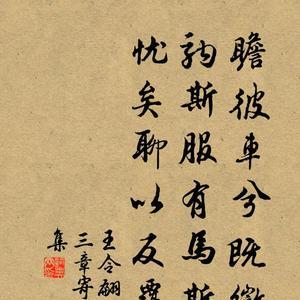 瞻彼車兮既
斯服有馬斯
忧矣聊以反
王令翩
三章寄
集